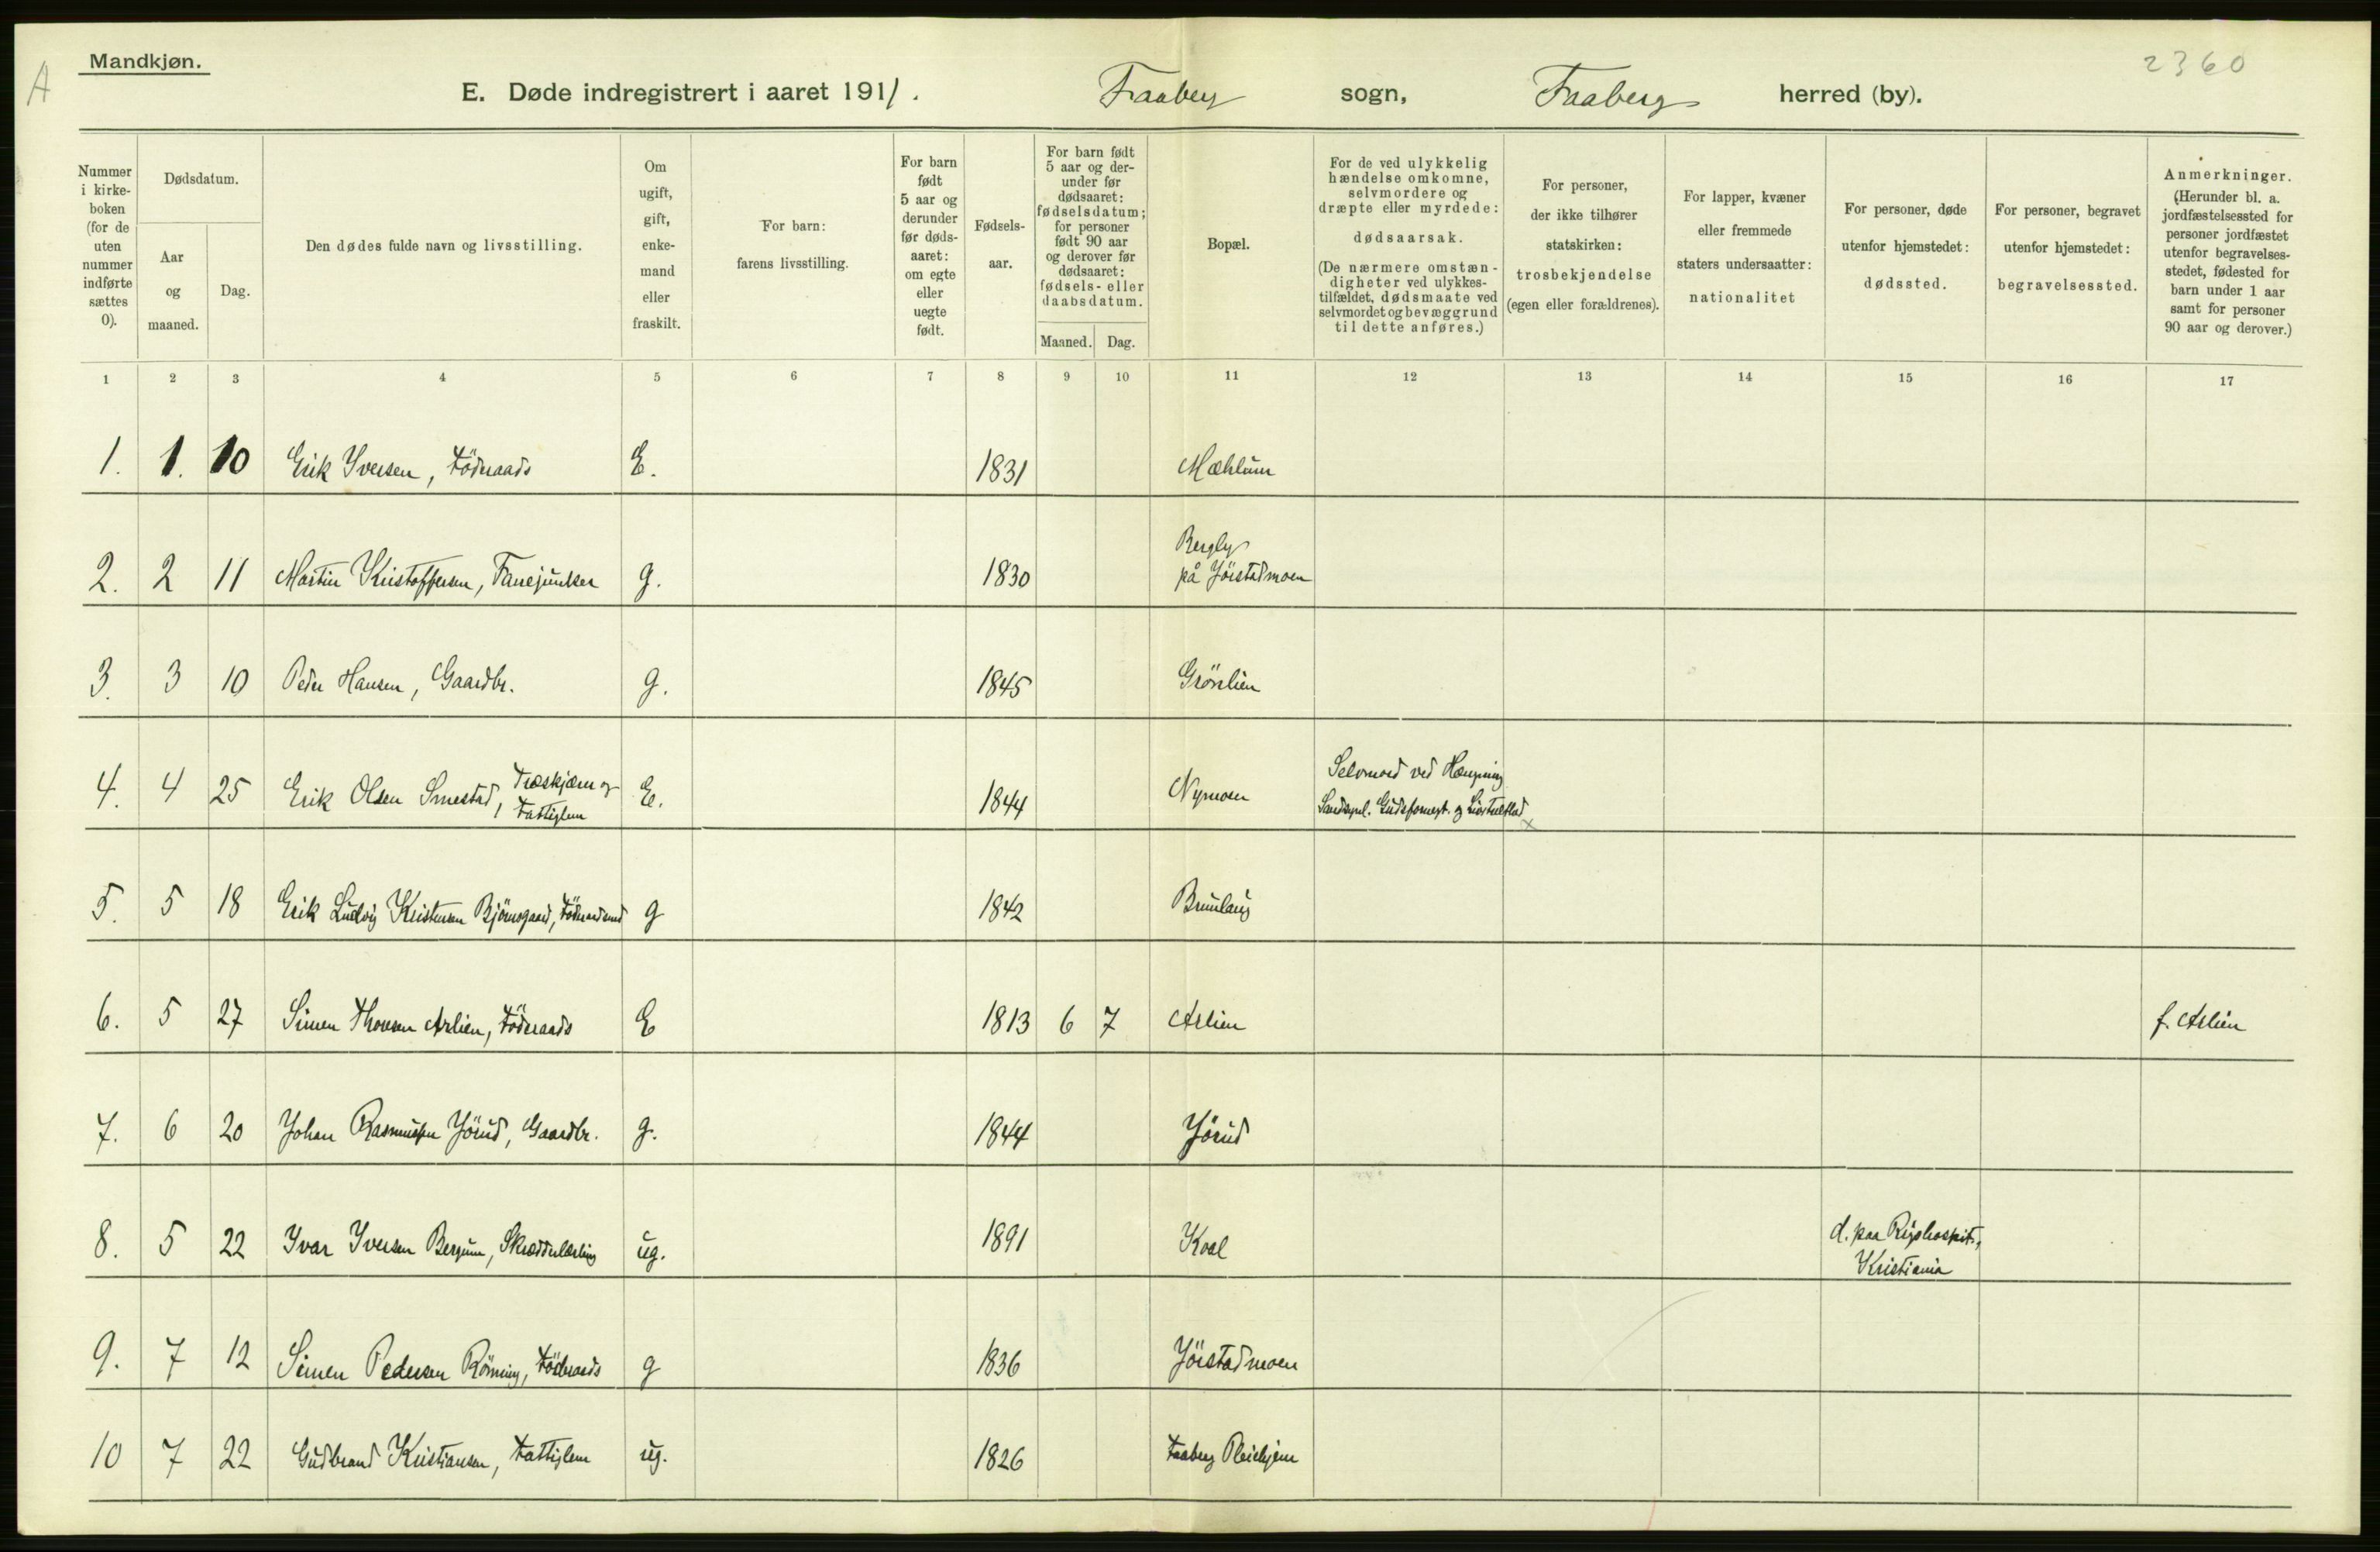 Mandkjøn.
A
2360
E. Døde indregistrert i aaret 1911. Faaberg sogn, Faaberg herred (by).
Nummer
i kirke-
boken
(for de
uten
nummer
indførte
sættes
0).
Dødsdatum.
Aar
og
maaned.
Dag.
Den dødes fulde navn og livsstilling.
Om
ugift,
gift,
enke-
mand
eller
fraskilt.
For barn:
farens livsstilling.
For barn
født
5 aar og
derunder
før døds-
aaret:
om egte
eller
uegte
født.
Fødsels-
aar.
For barn født
5 aar og der-
under før
dødsaaret:
fødselsdatum;
for personer
født 90 aar
og derover før
dødsaaret:
fødsels- eller
daabsdatum.
Maaned.
Dag.
Bopæl.
For de ved ulykkelig
hændelse omkomne,
selvmordere og
dræpte eller myrdede:
dødsaarsak.
(De nærmere omstæn-
digheter ved ulykkes-
tilfældet, dødsmaate ved
selvmordet og bevæggrund
til dette anføres.)
For personer,
der ikke tilhører
statskirken:
trosbekjendelse
(egen eller forældrenes).
For lapper, kvæner
eller fremmede
staters undersaatter:
nationalitet
For personer, døde
utenfor hjemstedet:
dødssted.
For personer, begravet
utenfor hjemstedet:
begravelsessted.
Anmerkninger.
(Herunder bl. a.
jordfæstelsessted for
personer jordfæstet
utenfor begravelses-
stedet, fødested for
barn under 1 aar
samt for personer
90 aar og derover.)
1 2 3 4 5 6 7 8 9 10 11 12 13 14 15 16 17
1. 1. 10 Erik Iversen, Föderaads E. 1831 Mæhlum
Bergly
2. 2 11 Martin Kristoffersen, Fanejunker g. 1830 på Jörstadmoen
3. 3 10 Peder Hansen, Gaardbr. g. 1845 Grönlien
4. 4 25 Erik Olsen Smestad, Træskjærer og E. 1844 Nymoen Selvmord ved Hængning
Fattiglem Sandsynl.
5. 5 18 Erik Ludvig Kristensen Björnsgaard, Föderaadsmd g 1842 Brunlaug
6. 5 27 Simen Thoresen Aslien, Föderaads E 1813 6 7 Aslien f. Aslien
7. 6 20 Johan Rasmussen Jörud, Gaardbr. g. 1844 Jörud
8. 5 22 Ivar Iversen Bergum, Skrædderlærling ug. 1891 Koal d. paa Rigshospit.,
Kristiania
9. 7 12 Simen Pedersen Rönning, Föderaads g 1836 Jörstadmoen
10 7 22 Gudbrand Kristiansen, Fattiglem ug. 1826 Faaberg Pleiehjem